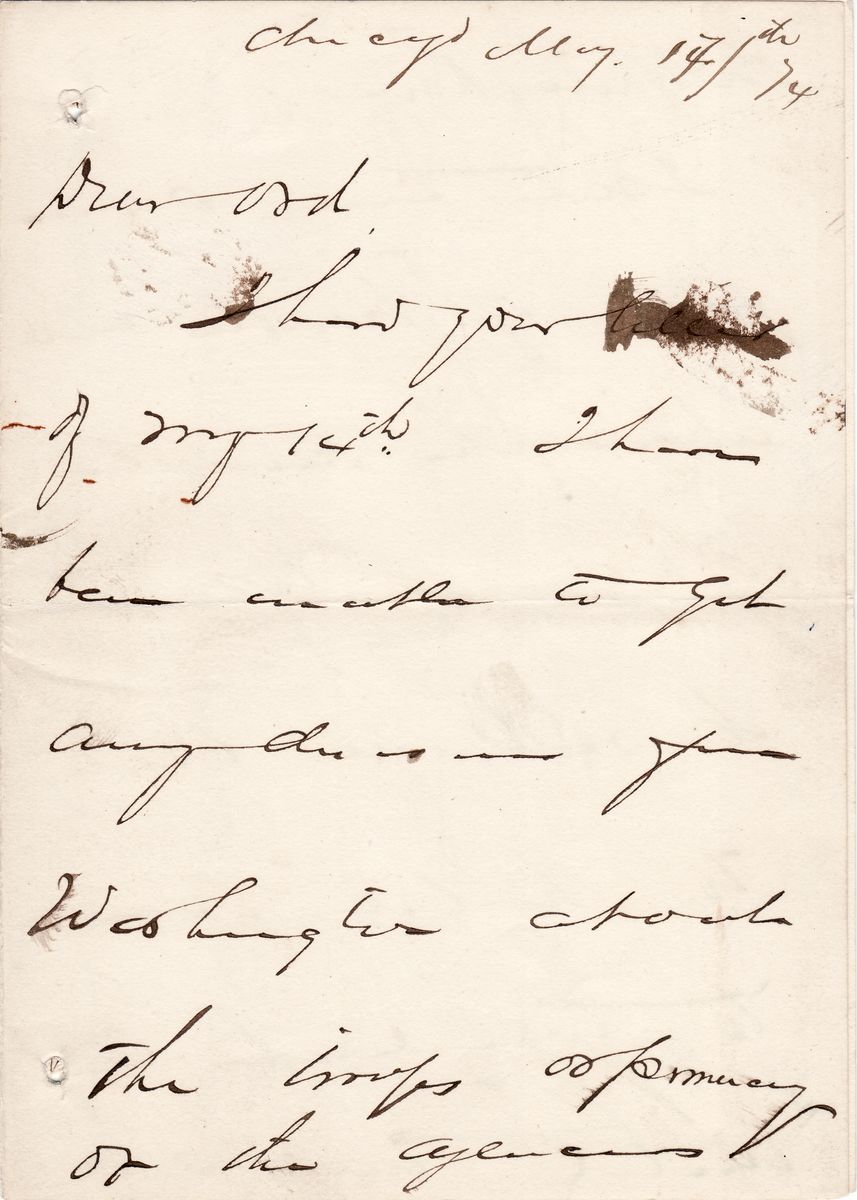 Chicago May. 17th 74
Dear Ord,
I have your letter
of May 14th. I have
been unable to get
any decision from
Washington about
the troops or permanency
or the agencies